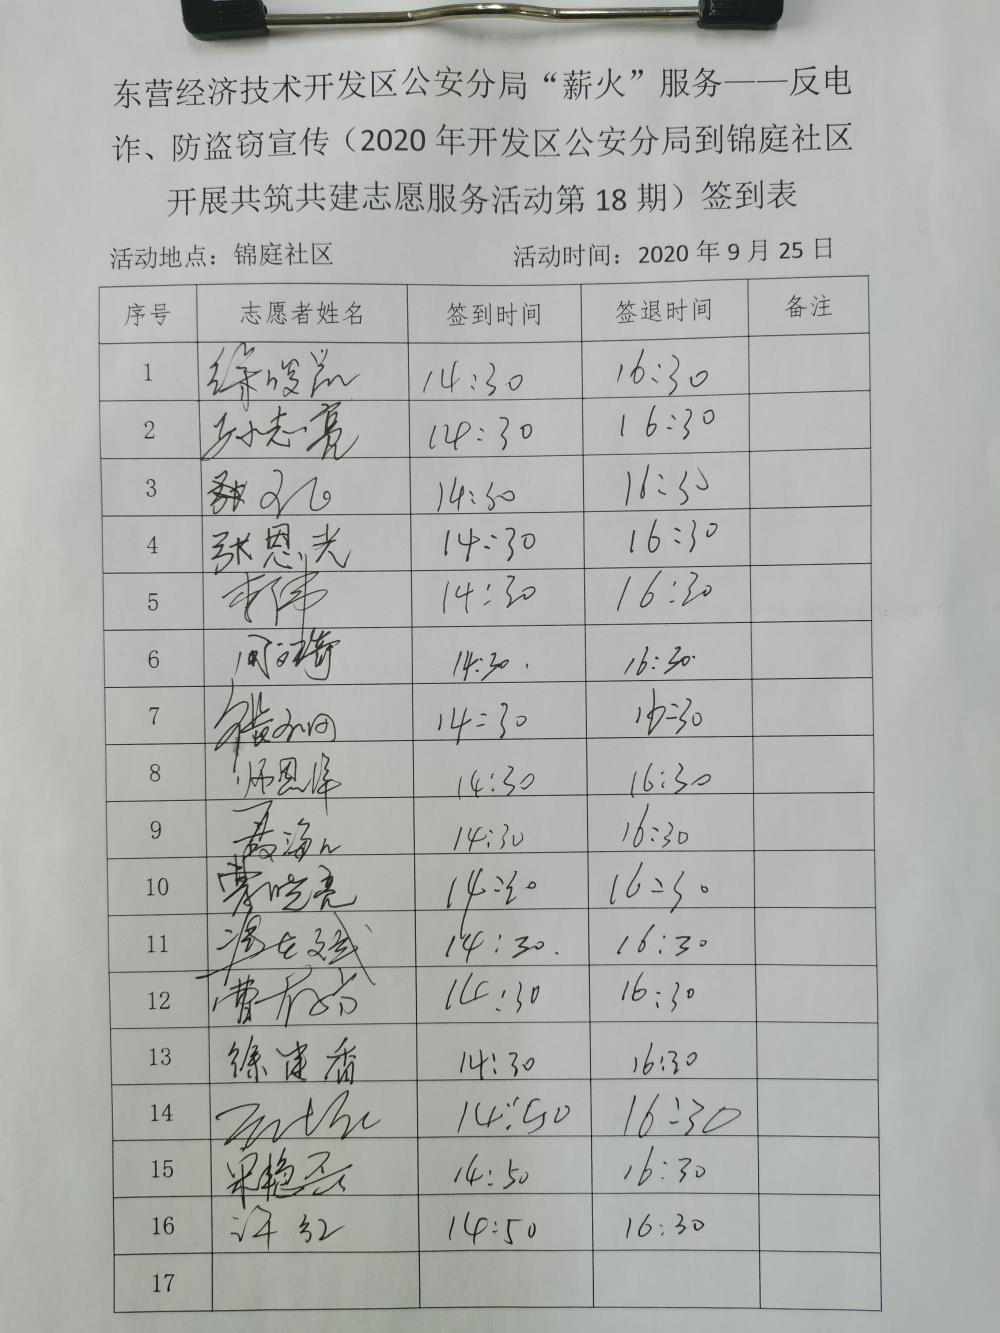 东营经济技术开发区公安分局“薪火”服务——反电
诈、防盗窃宣传（2020 年开发区公安分局到锦庭社区
开展共筑共建志愿服务活动第 18 期）签到表
活动地点：锦庭社区 活动时间：2020 年 9 月 25 日
序号 志愿者姓名 签到时间 签退时间 备注
1 14:30 16:30
2 孙志亮 14:30 16:30
3 14:30 16:30
4 张恩光 14:30 16:30
5 14:30 16:30
6 14:30. 16:30.
7 14:30 16:30
8 师恩峰 14:30 16:30
9 14:30 16:30
10 晓亮 14:30 16:30
11 14:30. 16:30
12 曹 14:30 16:30
13 徐建香 14:30 16:30
14 14:50 16:30
15 艳 14:50 16:30
16 许红 14:50 16:30
17